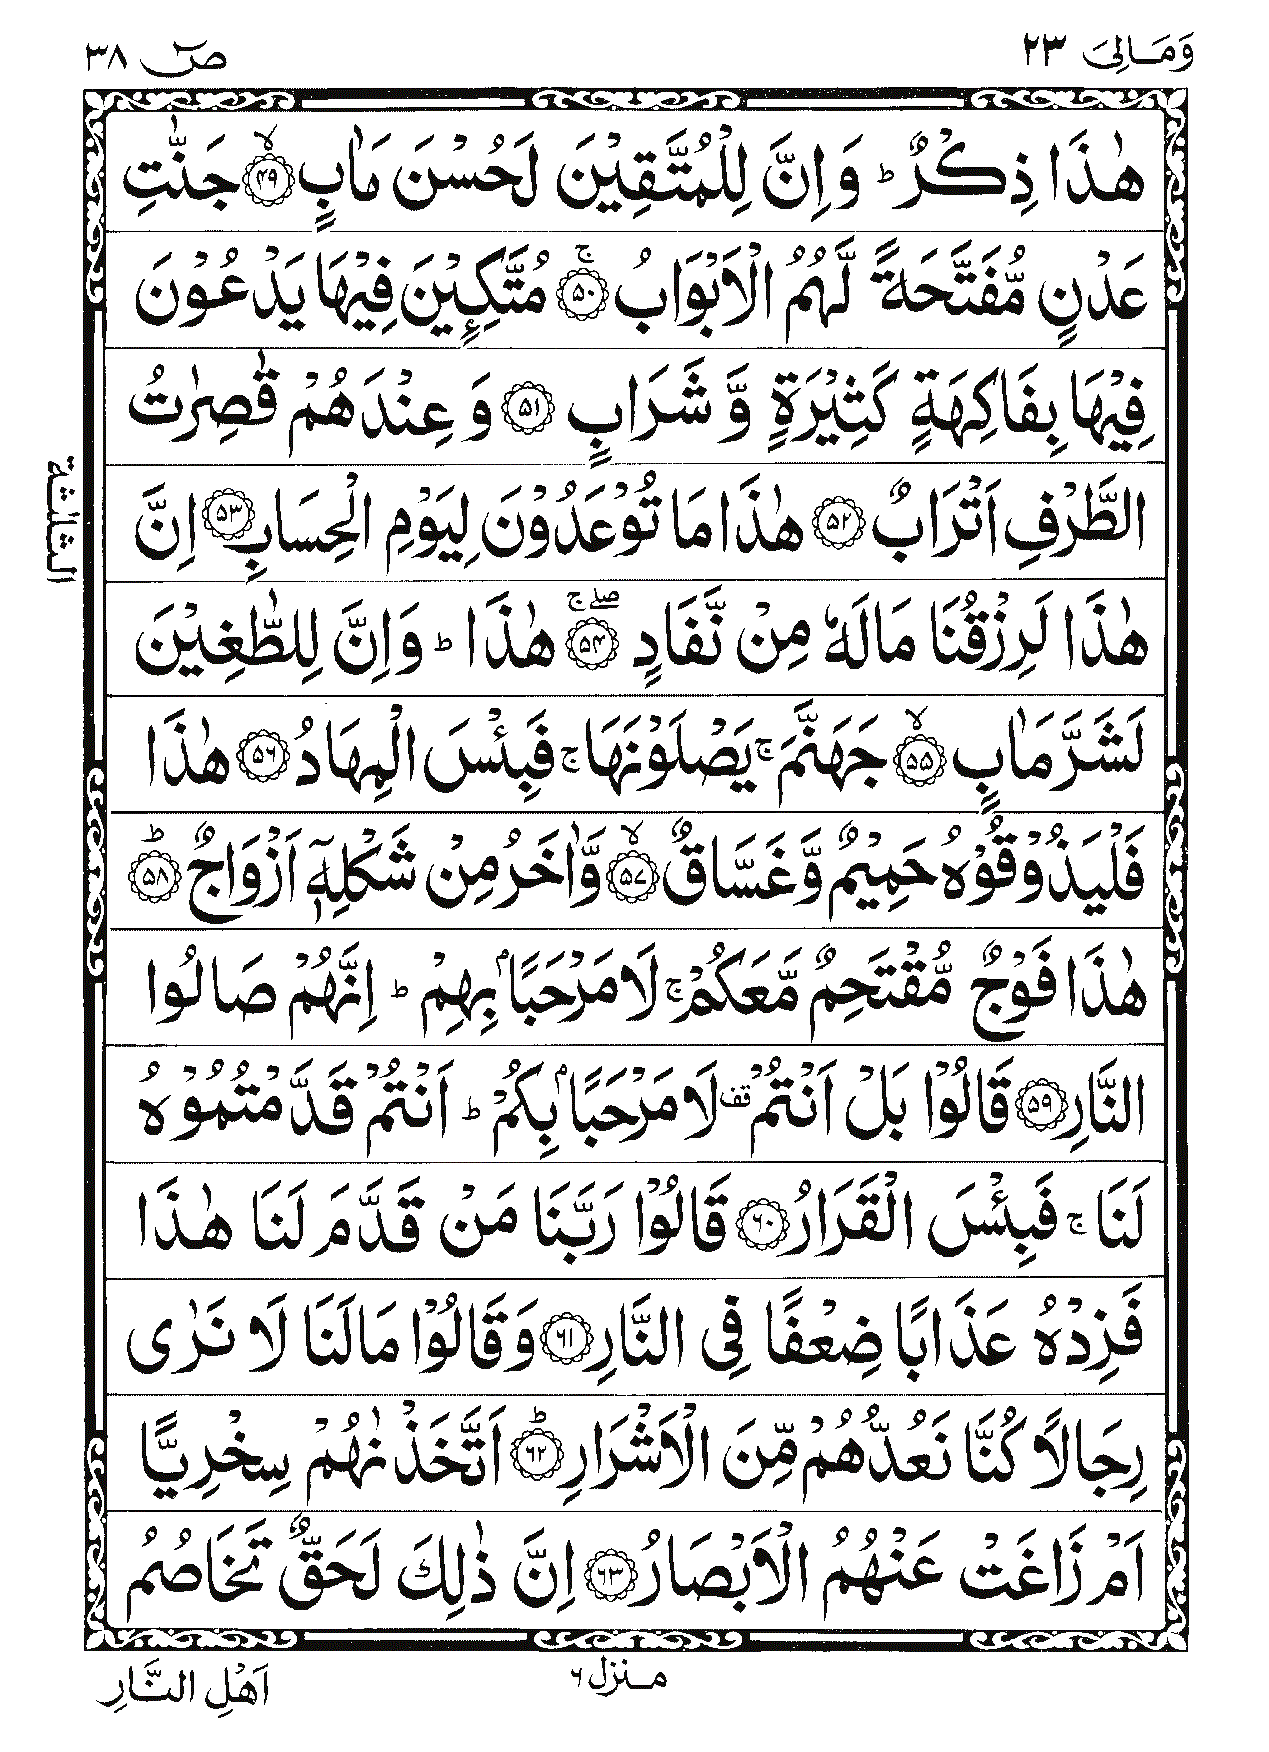 وَمَالِیَ ٢٣
صٓ ٣٨
هٰذَا ذِكْرٌ ؕ وَ اِنَّ لِلْمُتَّقِيْنَ لَحُسْنَ مَاٰبٍ ۙ﴿۴۹﴾ جَنّٰتِ
عَدْنٍ مُّفَتَّحَةً لَّهُمُ الْاَبْوَابُ ۚ﴿۵۰﴾ مُتَّكِـِٕيْنَ فِيْهَا يَدْعُوْنَ
فِيْهَا بِفَاكِهَةٍ كَثِيْرَةٍ وَّ شَرَابٍ ﴿۵۱﴾ وَ عِنْدَهُمْ قٰصِرٰتُ
الطَّرْفِ اَتْرَابٌ ﴿۵۲﴾ هٰذَا مَا تُوْعَدُوْنَ لِيَوْمِ الْحِسَابِ ﴿۵۳﴾ اِنَّ
الثلثة
هٰذَا لَرِزْقُنَا مَالَهٗ مِنْ نَّفَادٍ ۚۖ﴿۵۴﴾ هٰذَا ؕ وَاِنَّ لِلطّٰغِيْنَ
لَشَرَّ مَاٰبٍ ۙ﴿۵۵﴾ جَهَنَّمَ ۚ يَصْلَوْنَهَا ۚ فَبِئْسَ الْمِهَادُ ﴿۵۶﴾ هٰذَا
فَلْيَذُوْقُوْهُ حَمِيْمٌ وَّغَسَّاقٌ ۙ﴿۵۷﴾ وَّاٰخَرُ مِنْ شَكْلِهٖٓ اَزْوَاجٌ ؕ﴿۵۸﴾
هٰذَا فَوْجٌ مُّقْتَحِمٌ مَّعَكُمْ ۚ لَا مَرْحَبًۢا بِهِمْ ؕ اِنَّهُمْ صَالُوا
النَّارِ ﴿۵۹﴾ قَالُوْا بَلْ اَنْتُمْ قف لَا مَرْحَبًۢا بِكُمْ ؕ اَنْتُمْ قَدَّمْتُمُوْهُ
لَنَا ۚ فَبِئْسَ الْقَرَارُ ﴿۶۰﴾ قَالُوْا رَبَّنَا مَنْ قَدَّمَ لَنَا هٰذَا
فَزِدْهُ عَذَابًا ضِعْفًا فِی النَّارِ ﴿۶۱﴾ وَقَالُوْا مَالَنَا لَا نَرٰى
رِجَالًا كُنَّا نَعُدُّهُمْ مِّنَ الْاَشْرَارِ ؕ﴿۶۲﴾ اَتَّخَذْنٰهُمْ سِخْرِيًّا
اَمْ زَاغَتْ عَنْهُمُ الْاَبْصَارُ ﴿۶۳﴾ اِنَّ ذٰلِكَ لَحَقٌّ تَخَاصُمُ
منزل ٦
اَهْلِ النَّارِ